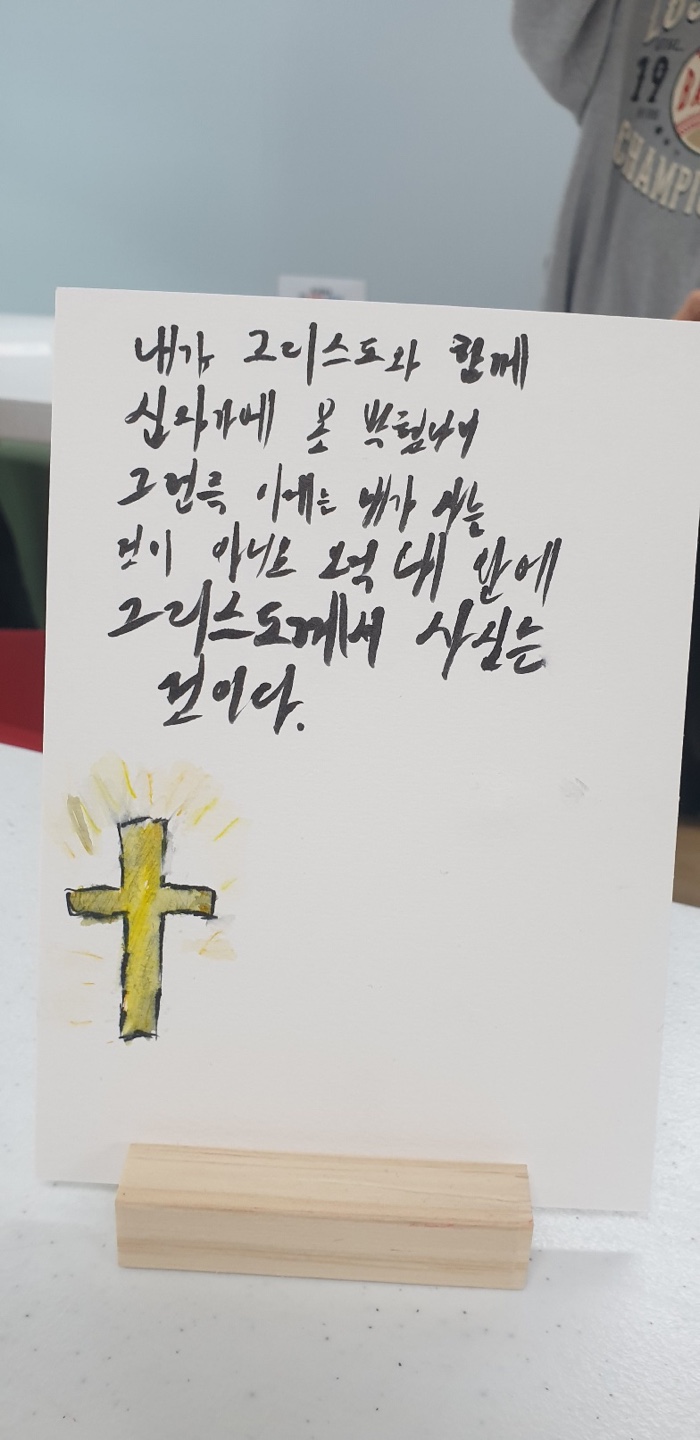 19
CHAMPI
내가 그리스도와 함께
십자가에 못 박혔나니
그런즉 이제는 내가 사는
것이 아니요 오직 내 안에
그리스도께서 사시는
것이다.